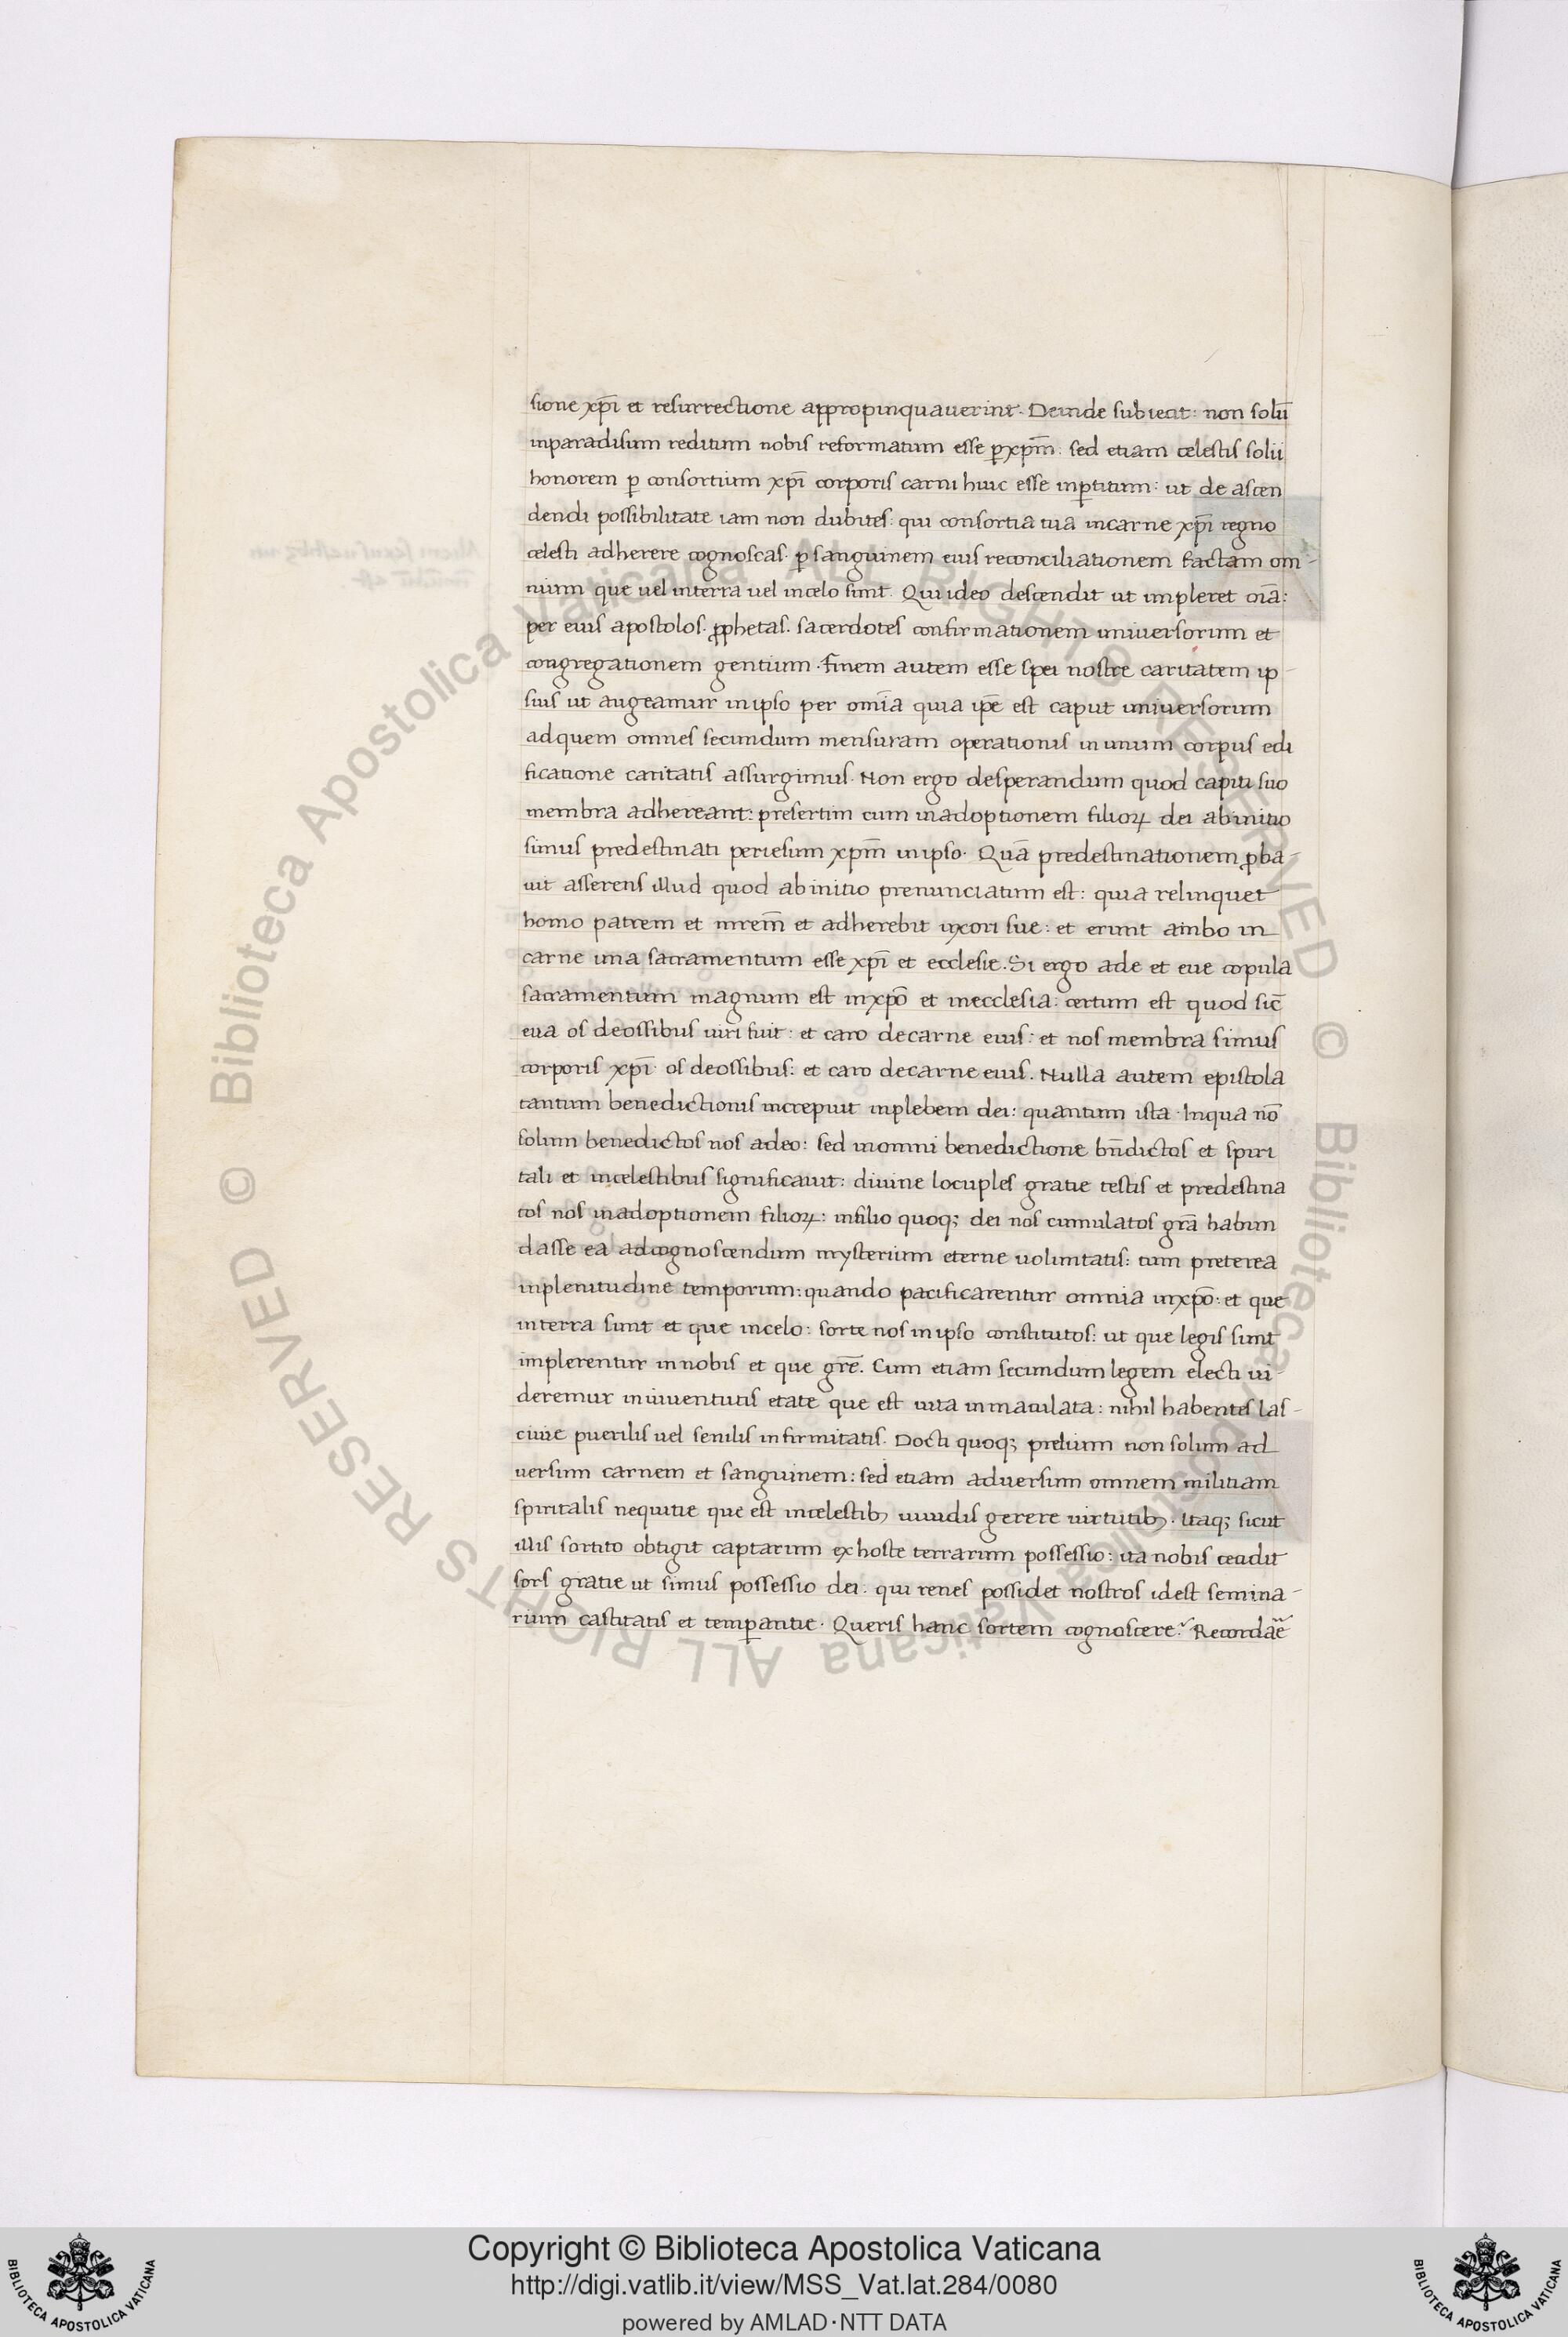 sione xp̄i et resurrectione appropinquauerint. Deinde subiecit: non solū
inparadisum reditum nobis reformatum esse ꝑxpm̄: sed etiam celestis solii
honorem ꝑ consortium xp̄i corporis carni huic esse inꝑtitum: ut de ascen
dendi possibilitate iam non dubites: qui consortia tua incarne xp̄i regno
celesti adherere cognoscas. ꝑ sanguinem eius reconciliationem factam om-
nium que uel interra uel incelo sunt. Qui ideo descendit ut impleret oīa:
per eius apostolos. ꝓphetas. sacerdotes confirmationem uniuersorum et
congregationem gentium. Finem autem esse spei nostre caritatem ip-
sius ut augeamur inipso per omīa quia ip̄e est caput uniuersorum
adquem omnes secundum mensuram operationis inunum corpus edi
ficatione caritatis assurgimus. Non ergo desperandum quod capiti suo
membra adhereant: presertim cum inadoptionem filioꝝ dei abinitio
simus predestinati periesum xpm̄ inipso. Quā predestinationem ꝓba-
uit asserens illud quod abinitio prenunciatum est: quia relinquet
homo patrem et mrem̄ et adherebit uxori sue: et erunt ambo in
carne una sacramentum esse xp̄i et ecclesie. Si ergo ade et eue copula
sacramentum magnum est inxpō et inecclesia: certum est quod sic̄
eua os deossibus uiri fuit: et caro decarne eius: et nos membra simus
corporis xp̄i: os deossibus: et caro decarne eius. Nulla autem epistola
tantum benedictionis increpuit inplebem dei: quantum ista. Inqua nō
solum benedictos nos adeo: sed inomni benedictione bn̄dictos et spiri
tali et incelestibus significauit: diuine locuples gratie testis et predestina
tos nos inadoptionem filioꝝ: infilio quoq; dei nos cumulatos grā habun
dasse ea adcognoscendum mysterium eterne uoluntatis: tum preterea
inplenitudine temporum: quando pacificarentur omnia inxpō: et que
interra sunt et que incelo: sorte nos inipso constitutos: ut que legis sunt
implerentur innobis et que grē. Cum etiam secundum legem electi ui-
deremur iniuuentutis etate que est uita inmaculata: nihil habentes las-
ciuie puerilis uel senilis infirmitatis. Docti quoq; prelium non solum ad
uersum carnem et sanguinem: sed etiam aduersum omnem militiam
spiritalis nequitie que est incelestibꝫ uiuidis gerere uirtutibꝫ. Itaq; sicut
illis sortito obtigit captarum exhoste terrarum possessio: ita nobis cecidit
sors gratie ut simus possessio dei: qui renes possidet nostros idest semina-
rium castitatis et temꝑantie. Queris hanc sortem cognoscere? Recordāe
Copyright © Biblioteca Apostolica Vaticana
http://digi.vatlib.it/view/MSS_Vat.lat.284/0080
powered by AMLAD·NTT DATA
BIBLIOTECA APOSTOLICA VATICANA
BIBLIOTECA APOSTOLICA VATICANA
© Biblioteca Apostolica Vaticana ALL RIGHTS RESERVED © Biblioteca Apostolica Vaticana ALL RIGHTS RESERVED